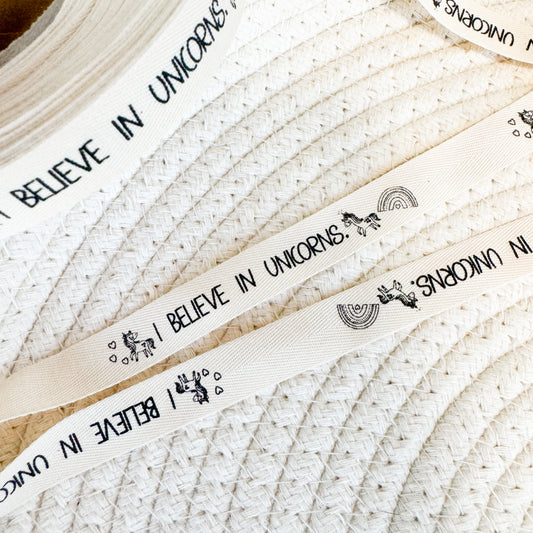 I BELIEVE IN UNICORNS.
UNICORNS.
I BELIEVE IN UNICORNS.
IN UNICORNS.
I BELIEVE IN UNICO